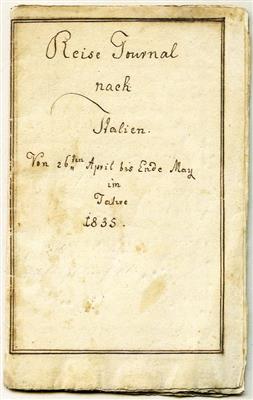 Reise Journal
nach
Italien.
Von 26ten April bis Ende May
im
Jahre
1835.